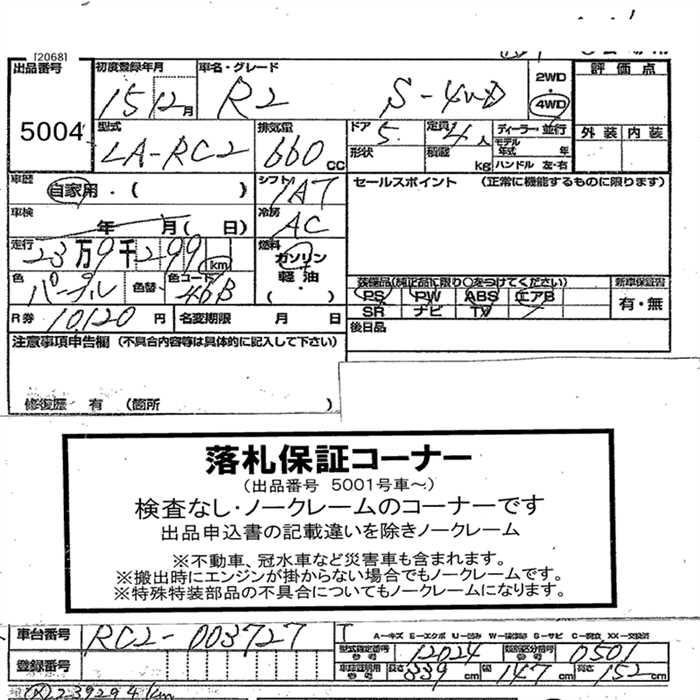 [2068]
出品番号 初度登録年月 車名・グレード 2WD・4WD 評価点
5004 15 12月 R2 S-4WD
型式 LA-RC2 排気量 660 CC ドア 5 定員 4人 ディーラー・並行 外装 内装
形状 積載 kg モデル年式 年 ハンドル 左・右
車歴 自家用・( ) シフト 1AT セールスポイント (正常に機能するものに限ります)
車検 年 月( 日) 冷房 AC
走行 23万9千299 km 燃料 ガソリン 軽油 ( ・ )
色 パープル 色替 色コード 46B
装備品(純正品に限り○をつけてください) 新車保証書
PS PW ABS エアB 有・無
SR ナビ TV
R券 10,120円 名変期限 月 日 後日品
注意事項申告欄 (不具合内容等は具体的に記入して下さい)
修復歴 有 (箇所 )
落札保証コーナー
(出品番号 5001号車~)
検査なし・ノークレームのコーナーです
出品申込書の記載違いを除きノークレーム
※不動車、冠水車など災害車も含まれます。
※搬出時にエンジンが掛からない場合でもノークレームです。
※特殊特装部品の不具合についてもノークレームになります。
車台番号 RC2-003727 A-キズ E-エクボ U-凹み W-補修跡 S-サビ C-腐食 XX-交換済
型式指定番号 参考 12024 類別区分番号 参考 0501
登録番号 車検証証明用 参考 長さ 339 cm 幅 147 cm 高さ 152 cm
239294km